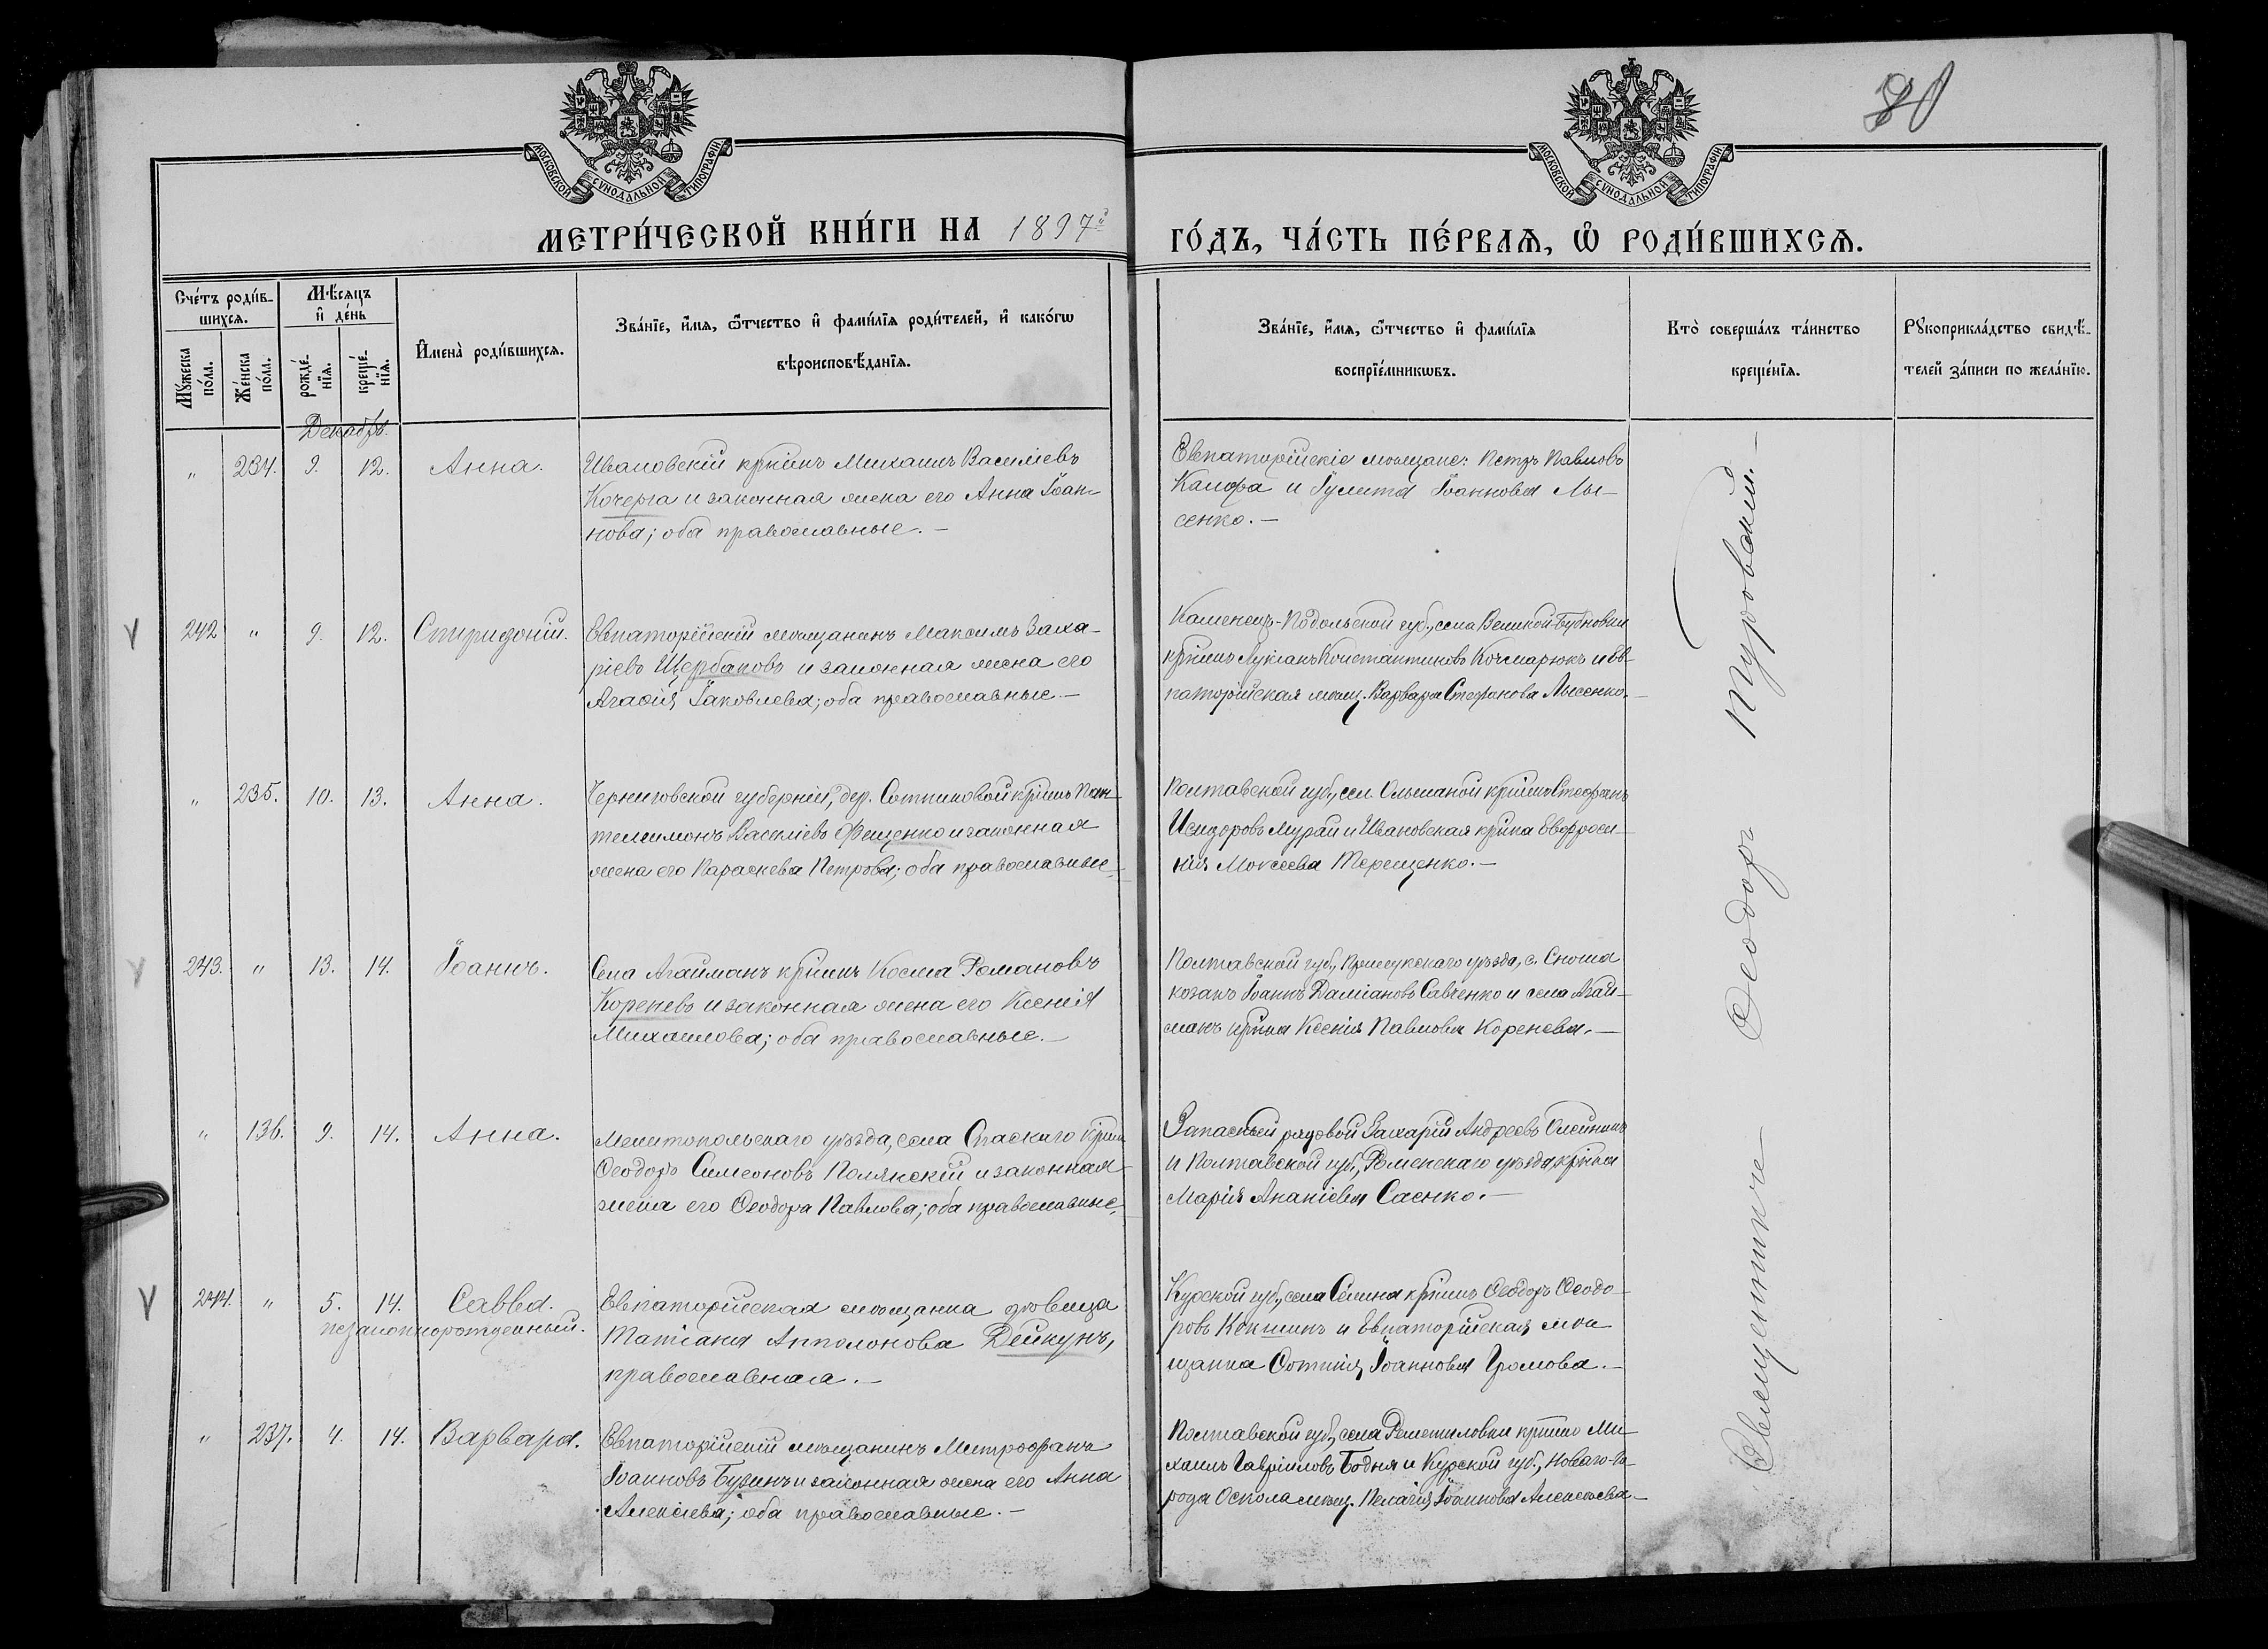 80
МОСКОВСКОЙ СѴНОДАЛЬНОЙ ТИПОГРАФІИ
МОСКОВСКОЙ СѴНОДАЛЬНОЙ ТИПОГРАФІИ
МЕТРИ́ЧЕСКОЙ КНИ́ГИ НА 1897й ГО́ДЪ, ЧА́СТЬ ПЕ́РВАѦ, Ѽ РОДИ́ВШИХСѦ.
Сче́тъ роди́в-
шихсѧ.
Мꙋ́жеска
по́ла.
Же́нска
по́ла.
Мѣ́сѧцъ
и҆ де́нь
рожде́-
нїѧ.
креще́-
нїѧ.
И҆мена̀ роди́вшихсѧ.
Зва́нїе, и҆́мѧ, ѻ҆́тчество и҆ фами́лїѧ роди́телей, и҆ како́гѡ
вѣроисповѣ́данїѧ.
Зва́нїе, и҆́мѧ, ѻ҆́тчество и҆ фами́лїѧ
воспрїе́мникѡвъ.
Кто̀ соверша́лъ та́инство
креще́нїѧ.
Рꙋкоприкла́дство свидѣ́-
телей за́писи по жела́нїю.
Декабрь.
„ 234. 9. 12. Анна.
Ивановскій крнинъ Михаилъ Василіевъ
Кочерга и законная жена его Анна Іоан-
нова; оба православные.—
Евпаторійскіе мѣщане: Петръ Павловъ
Канфа и Іулита Іоаннова Лы-
сенко.—
242 „ 9. 12. Спиридонъ.
Евпаторійскій мѣщанинъ Максимъ Заха-
ріевъ Щербаковъ и законная жена его
Агафія Іаковлева; оба православные—
Каменецъ-Подольской губ., села Великой-Бубновки
крнинъ Лукіанъ Константиновъ Кочмарюкъ и Ев-
паторійская мѣщ. Варвара Стефанова Лысенко.—
„ 235. 10. 13. Анна.
Черниговской губерніи, дер. Сотниковой крнинъ Пан-
телеимонъ Василіевъ Фещенко и законная
жена его Параскева Петрова; оба православные—
Полтавской губ., сел. Ольшаной крнинъ Стефанъ
Исидоровъ Мурай и Ивановская крнка Евфроси-
нія Моисеева Терещенко.—
243. „ 13. 14. Іоаннъ.
Села Агайманъ крнинъ Косма Романовъ
Кореневъ и законная жена его Ксенія
Михаилова; оба православные.—
Полтавской губ., Прилукскаго уѣзда, с. Сноша
козакъ Іоаннъ Даміановъ Савченко и села Агай-
манъ крнка Ксенія Павлова Коренева.—
„ 136. 9. 14. Анна.
Мелитопольскаго уѣзда, села Спаскаго крнинъ
Ѳеодоръ Симеоновъ Полянскій и законная
жена его Ѳеодора Павлова; оба православные.
Запасный рядовой Захарій Андреевъ Олейникъ
и Полтавской губ., Роменскаго уѣзда, крнка
Марія Ананіева Саенко.—
244. „ 5. 14. Савва.
незаконнорожденный.
Евпаторійская мѣщанка дѣвица
Татіана Апполонова Дейкунъ,
православная.—
Курской губ., села Сѣмина крнинъ Ѳеодоръ Ѳеодо-
ровъ Кокшинъ и Евпаторійская мѣ-
щанка Фотинія Іоаннова Громова.—
„ 237. 4. 14. Варвара.
Евпаторійскій мѣщанинъ Митрофанъ
Іоанновъ Бузинъ и законная жена его Анна
Алексіева; оба православные.—
Полтавской губ., села Решетиловки крнинъ Ми-
хаилъ Гавріиловъ Бодня и Курской губ., Новаго-го-
рода Оскола мѣщ. Пелагія Іоаннова Алексѣева.—
Священникъ Ѳеодоръ Туровскій.—